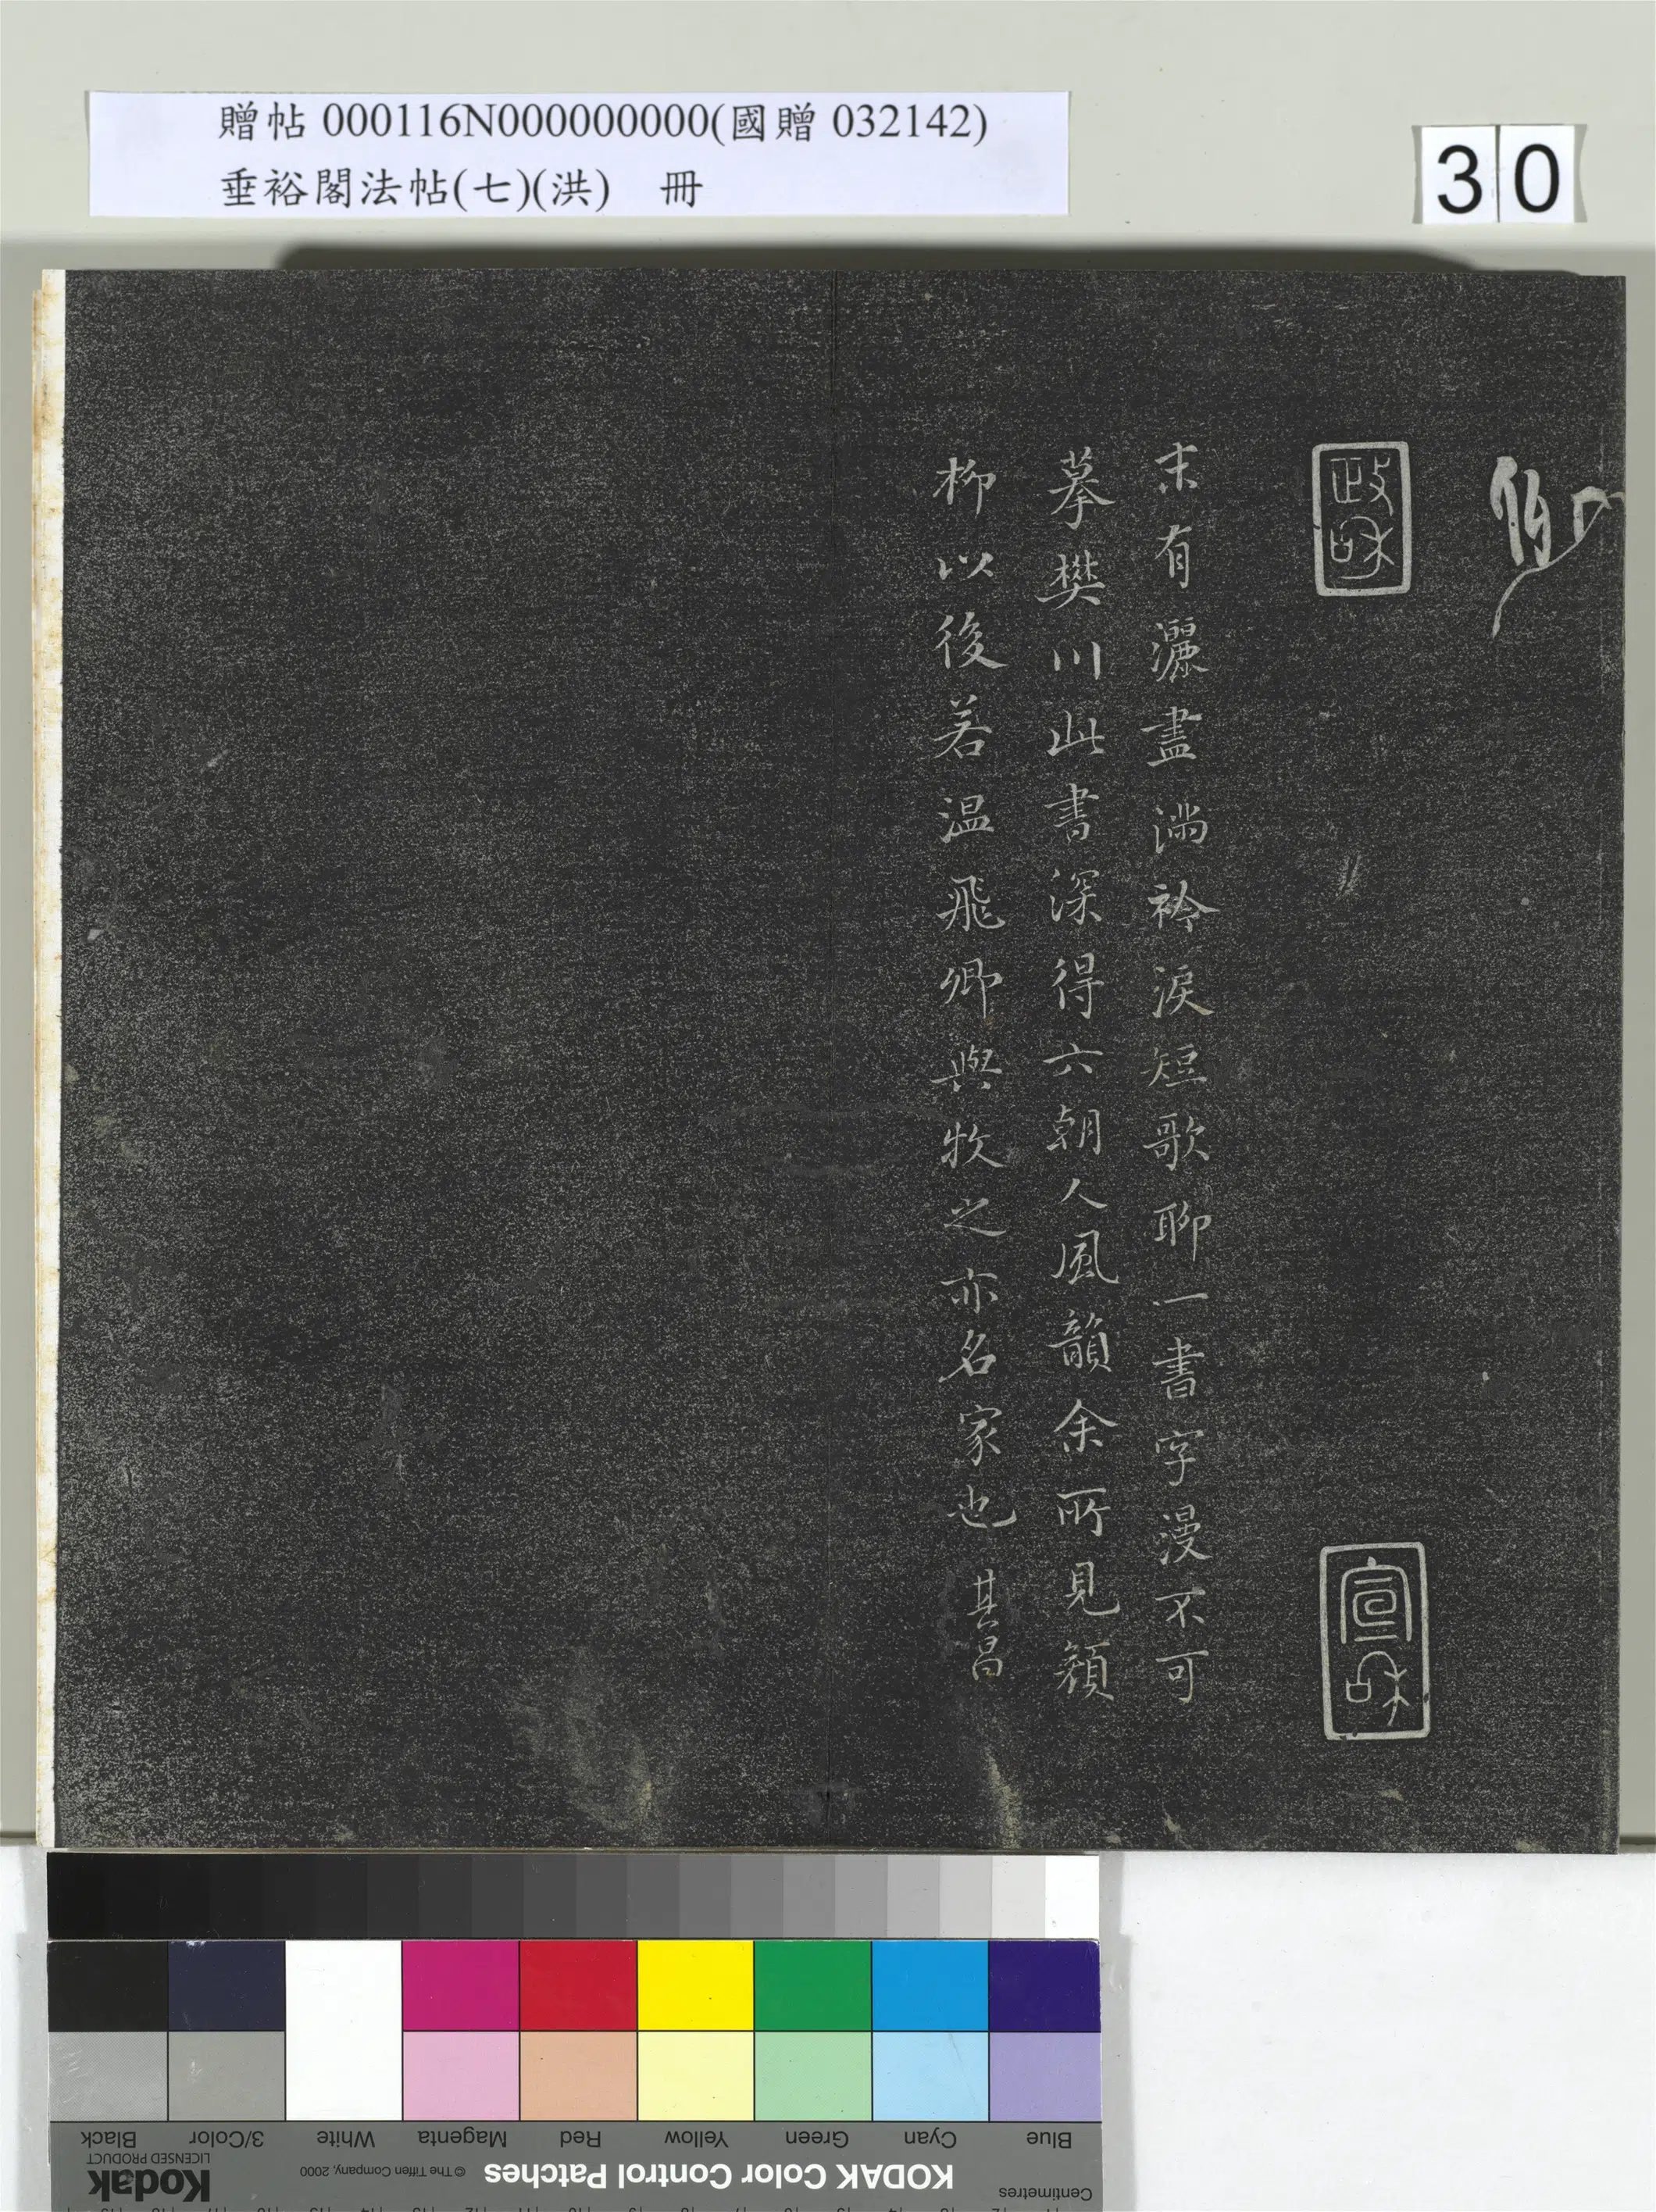 贈帖 000116N000000000(國贈 032142)
垂裕閣法帖(七)(洪)　冊
30
政和
宣和
末有灑盡滿衿淚短歌聊一書字漫不可
摹樊川此書深得六朝人風韻余所見顏
柳以後若温飛卿與牧之亦名家也 其昌
Black
3/Color
White
Magenta
Red
Yellow
Green
Cyan
Blue
Kodak
LICENSED PRODUCT
© The Tiffen Company, 2000
KODAK Color Control Patches
Centimetres